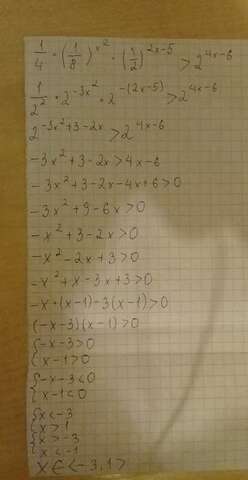 1/4 · (1/8)^x² · (1/2)^2x-5 > 2^4x-6
1/2² · 2^-3x² · 2^-(2x-5) > 2^4x-6
2^-3x²+3-2x > 2^4x-6
-3x²+3-2x > 4x-6
-3x²+3-2x-4x+6 > 0
-3x²+9-6x > 0
-x²+3-2x > 0
-x²-2x+3 > 0
-x²+x-3x+3 > 0
-x·(x-1)-3(x-1) > 0
(-x-3)(x-1) > 0
{-x-3 > 0
{x-1 > 0
{-x-3 < 0
{x-1 < 0
{x < -3
{x > 1
{x > -3
{x < -1
x ∈ <-3,1>